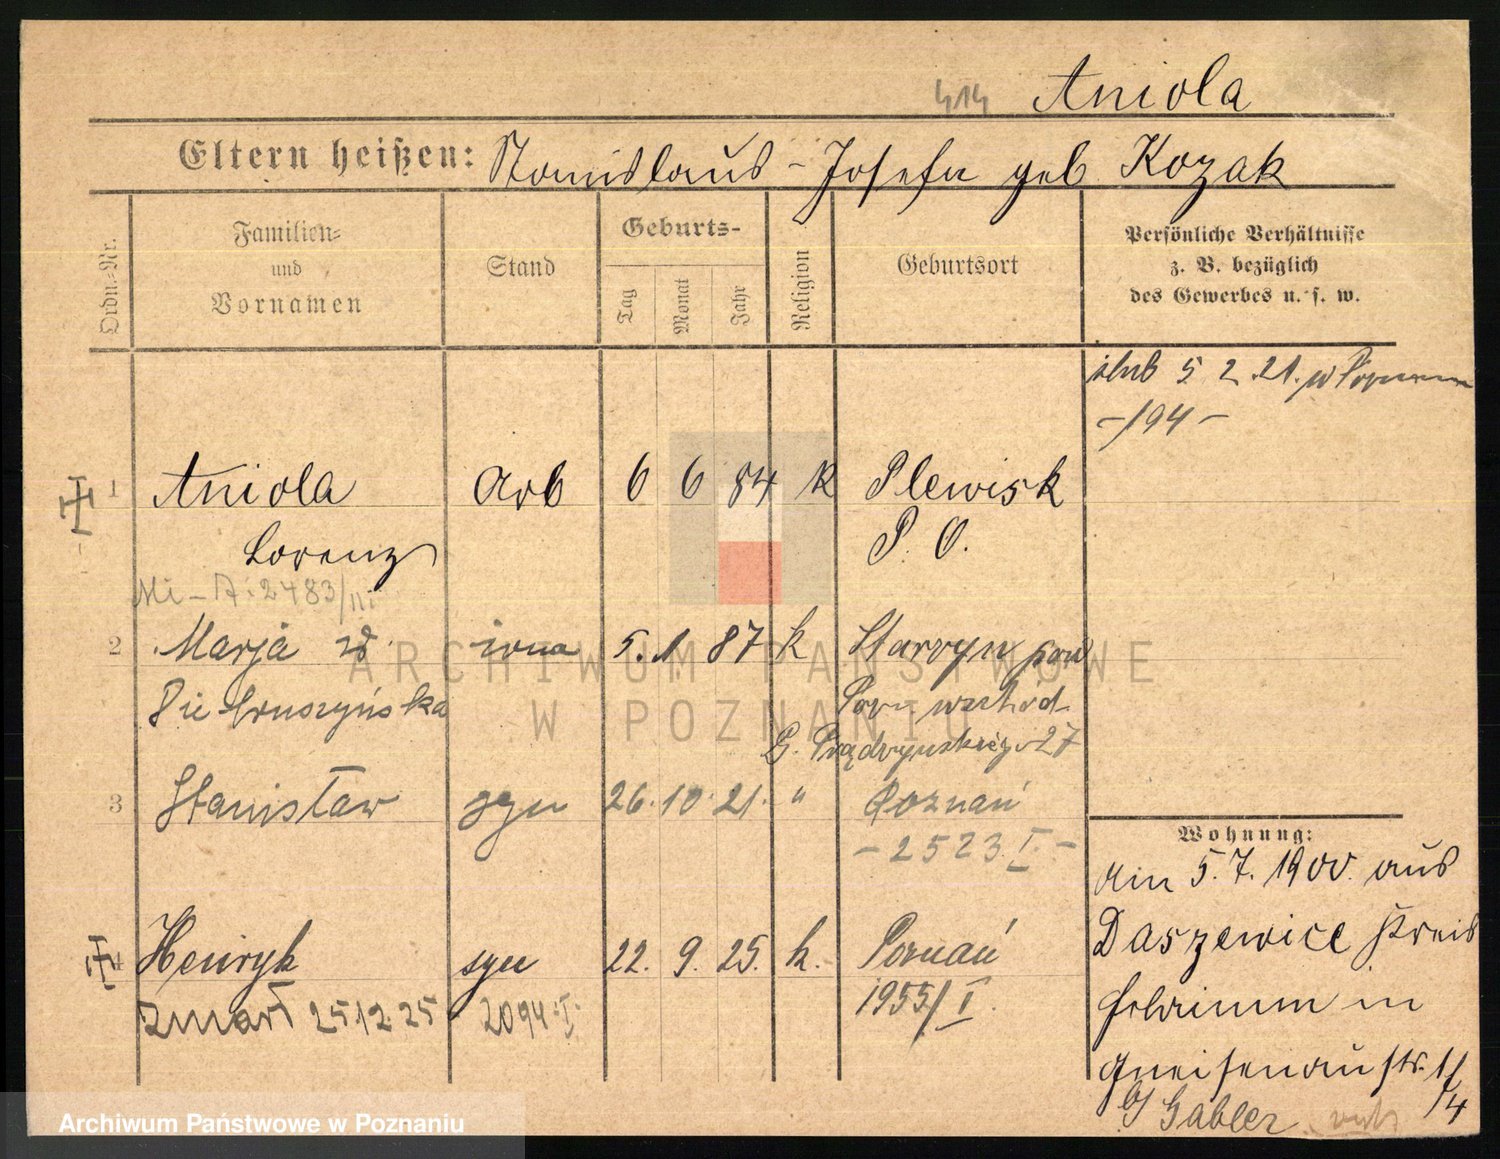 414 Aniola
Eltern heißen: Stanislaus - Josefa geb. Kozak
Ordn.-Nr.
Familien- und Vornamen
Stand
Geburts-
Tag
Monat
Jahr
Religion
Geburtsort
Persönliche Verhältnisse
z. B. bezüglich
des Gewerbes u. s. w.
ślub 5 2. 21. w Poznaniu
- 194 -
1 Aniola Arb 6 6 84 k Plewisk
Lorenz P. O.
2483/III
2 Marja żona 5. 1 87 k
Pietruszyńska
G. Prądzyńskiego 27
3 Stanisław syn 26. 10. 21. " Poznań
- 2523 I. -
4 Henryk syn 22. 9. 25. k. Poznań
zmarł 25.12.25 2094.I. 1955/I.
Wohnung:
Am 5. 7. 1900. aus
Daszewice Kreis
Schrimm in
Gneisenaustr. 1/4
b/ Gabler
ARCHIWUM PAŃSTWOWE
W POZNANIU
Archiwum Państwowe w Poznaniu